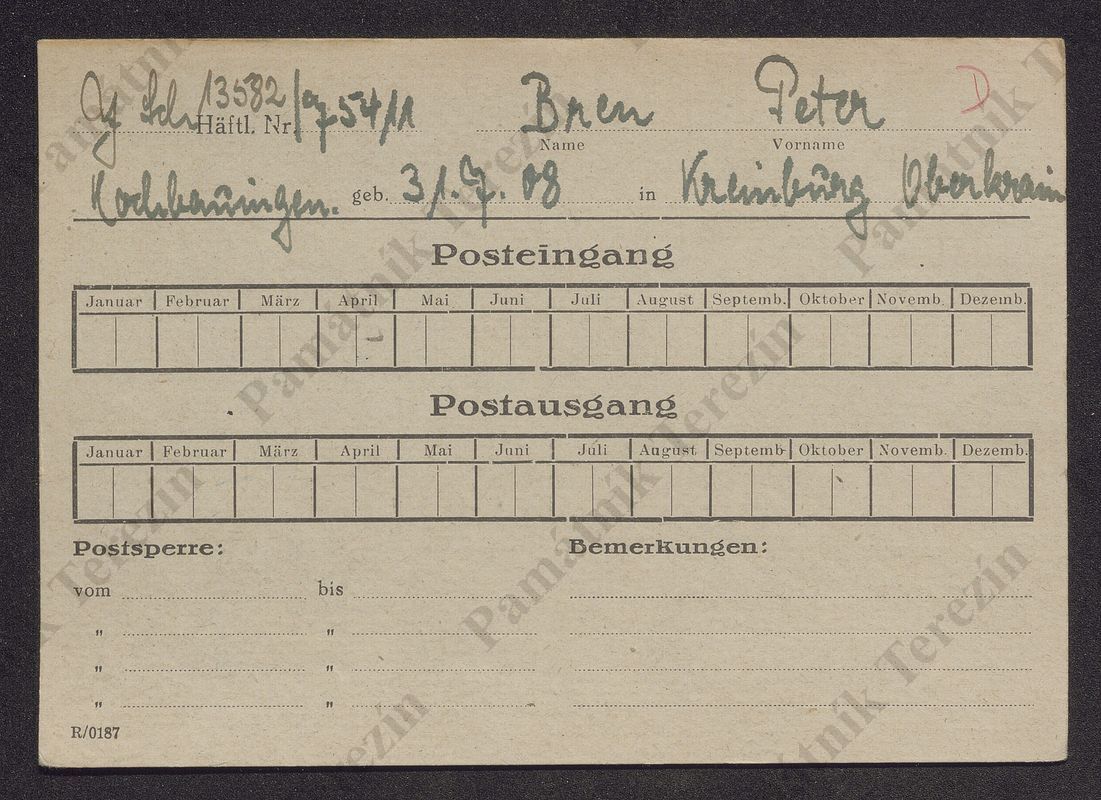 Sch 13582/
Häftl. Nr. 754/11 Bren Peter D
Name Vorname
geb. 31.7.08 in Kreinburg Oberkrain
Posteingang
Januar Februar März April Mai Juni Juli August Septemb. Oktober Novemb. Dezemb.
Postausgang
Januar Februar März April Mai Juni Juli August Septemb. Oktober Novemb. Dezemb.
Postsperre: Bemerkungen:
vom bis
" "
" "
" "
R/0187
Památník Terezín